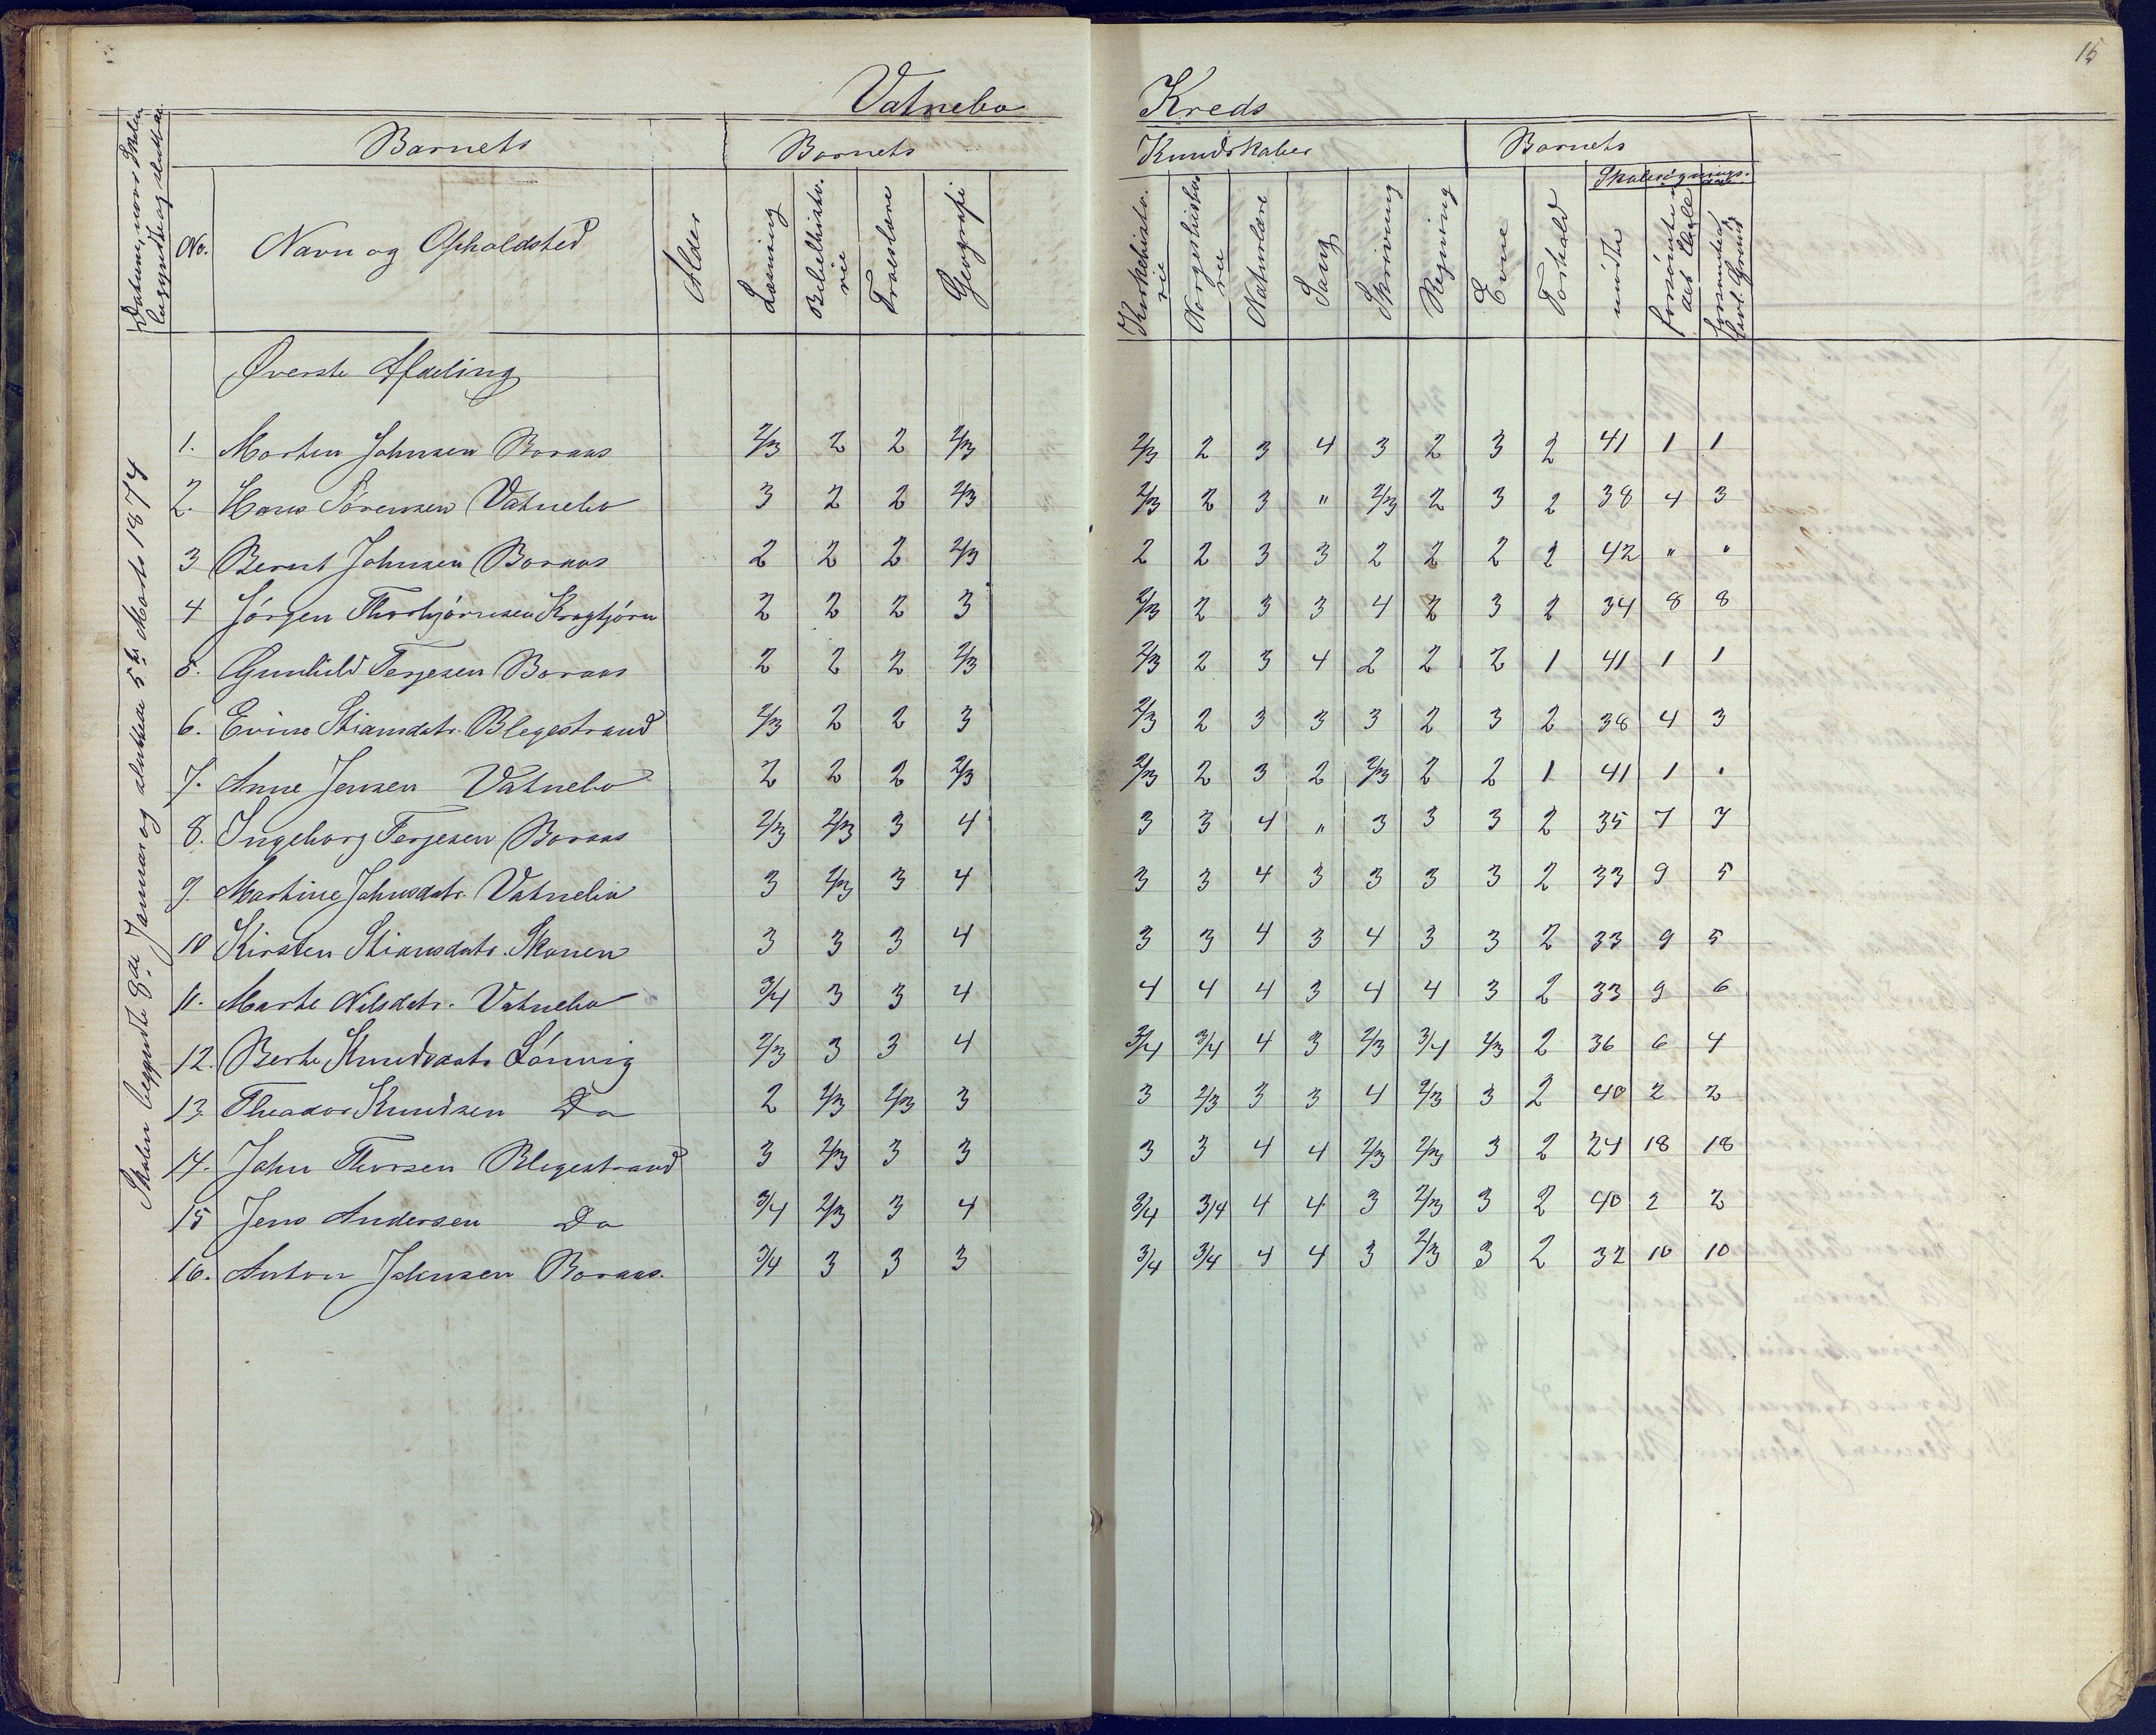 15
Vatnebo Kreds
Datum, naar Skolen begyndte og sluttede.
Barnets Barnets Kundskaber Barnets
No. Navn og Opholdsted Alder Læsning Bibelhistorie Troeslære Geografi Kirkehistorie Norgeshistorie Naturlære Sang Skrivning Regning Evne Forhold Skolesøgnings- mødte forsømte i det Hele forsømte af lovl. Grund
Skolen begyndte 8de Januar og sluttede 5te Marts 1874
Øverste Afdeling
1. Morten Johnsen Boraas 2/3 2 2 2/3 2/3 2 3 4 3 2 3 2 41 1 1
2. Hans Sørensen Vatnebo 3 2 2 2/3 2/3 2 3 " 2/3 2 3 2 38 4 3
3 Bernt Johnsen Boraas 2 2 2 2/3 2 2 3 3 2 2 2 2 42 " "
4 Jørgen Thorbjørnsen Kragtjørn 2 2 2 3 2/3 2 3 3 4 2 3 2 34 8 8
5. Gunhild Terjesen Boraas 2 2 2 2/3 2/3 2 3 4 2 2 2 1 41 1 1
6. Evine Stiansdatr. Blegestrand 2/3 2 2 3 2/3 2 3 3 3 2 3 2 38 4 3
7. Anne Jensen Vatnebo 2 2 2 2/3 2/3 2 3 2 2/3 2 2 1 41 1 "
8. Ingeborg Terjesen Boraas 2/3 2/3 3 4 3 3 4 " 3 3 3 2 35 7 7
9. Martine Johnsdatr. Vatnebo 3 2/3 3 4 3 3 4 3 3 3 3 2 33 9 5
10 Kirsten Stiansdatr. Skonen 3 3 3 4 3 3 4 3 4 3 3 2 33 9 5
11. Marte Nilsdatr. Vatnebo 3/4 3 3 4 4 4 4 3 4 4 3 2 33 9 6
12. Berte Knudsdatr Lønvig 2/3 3 3 4 3/4 3/4 4 3 2/3 3/4 2/3 2 36 6 4
13 Theodor Knudsen Do 2 2/3 2/3 3 3 2/3 3 3 4 2/3 3 2 40 2 2
14. John Thorsen Blegestrand 3 2/3 3 3 3 3 4 4 2/3 2/3 3 2 24 18 18
15 Jens Andersen Do 3/4 2/3 3 4 3/4 3/4 4 4 3 2/3 3 2 40 2 2
16. Anton Johnsen Boraas. 3/4 3 3 3 3/4 3/4 4 4 3 2/3 3 2 32 10 10